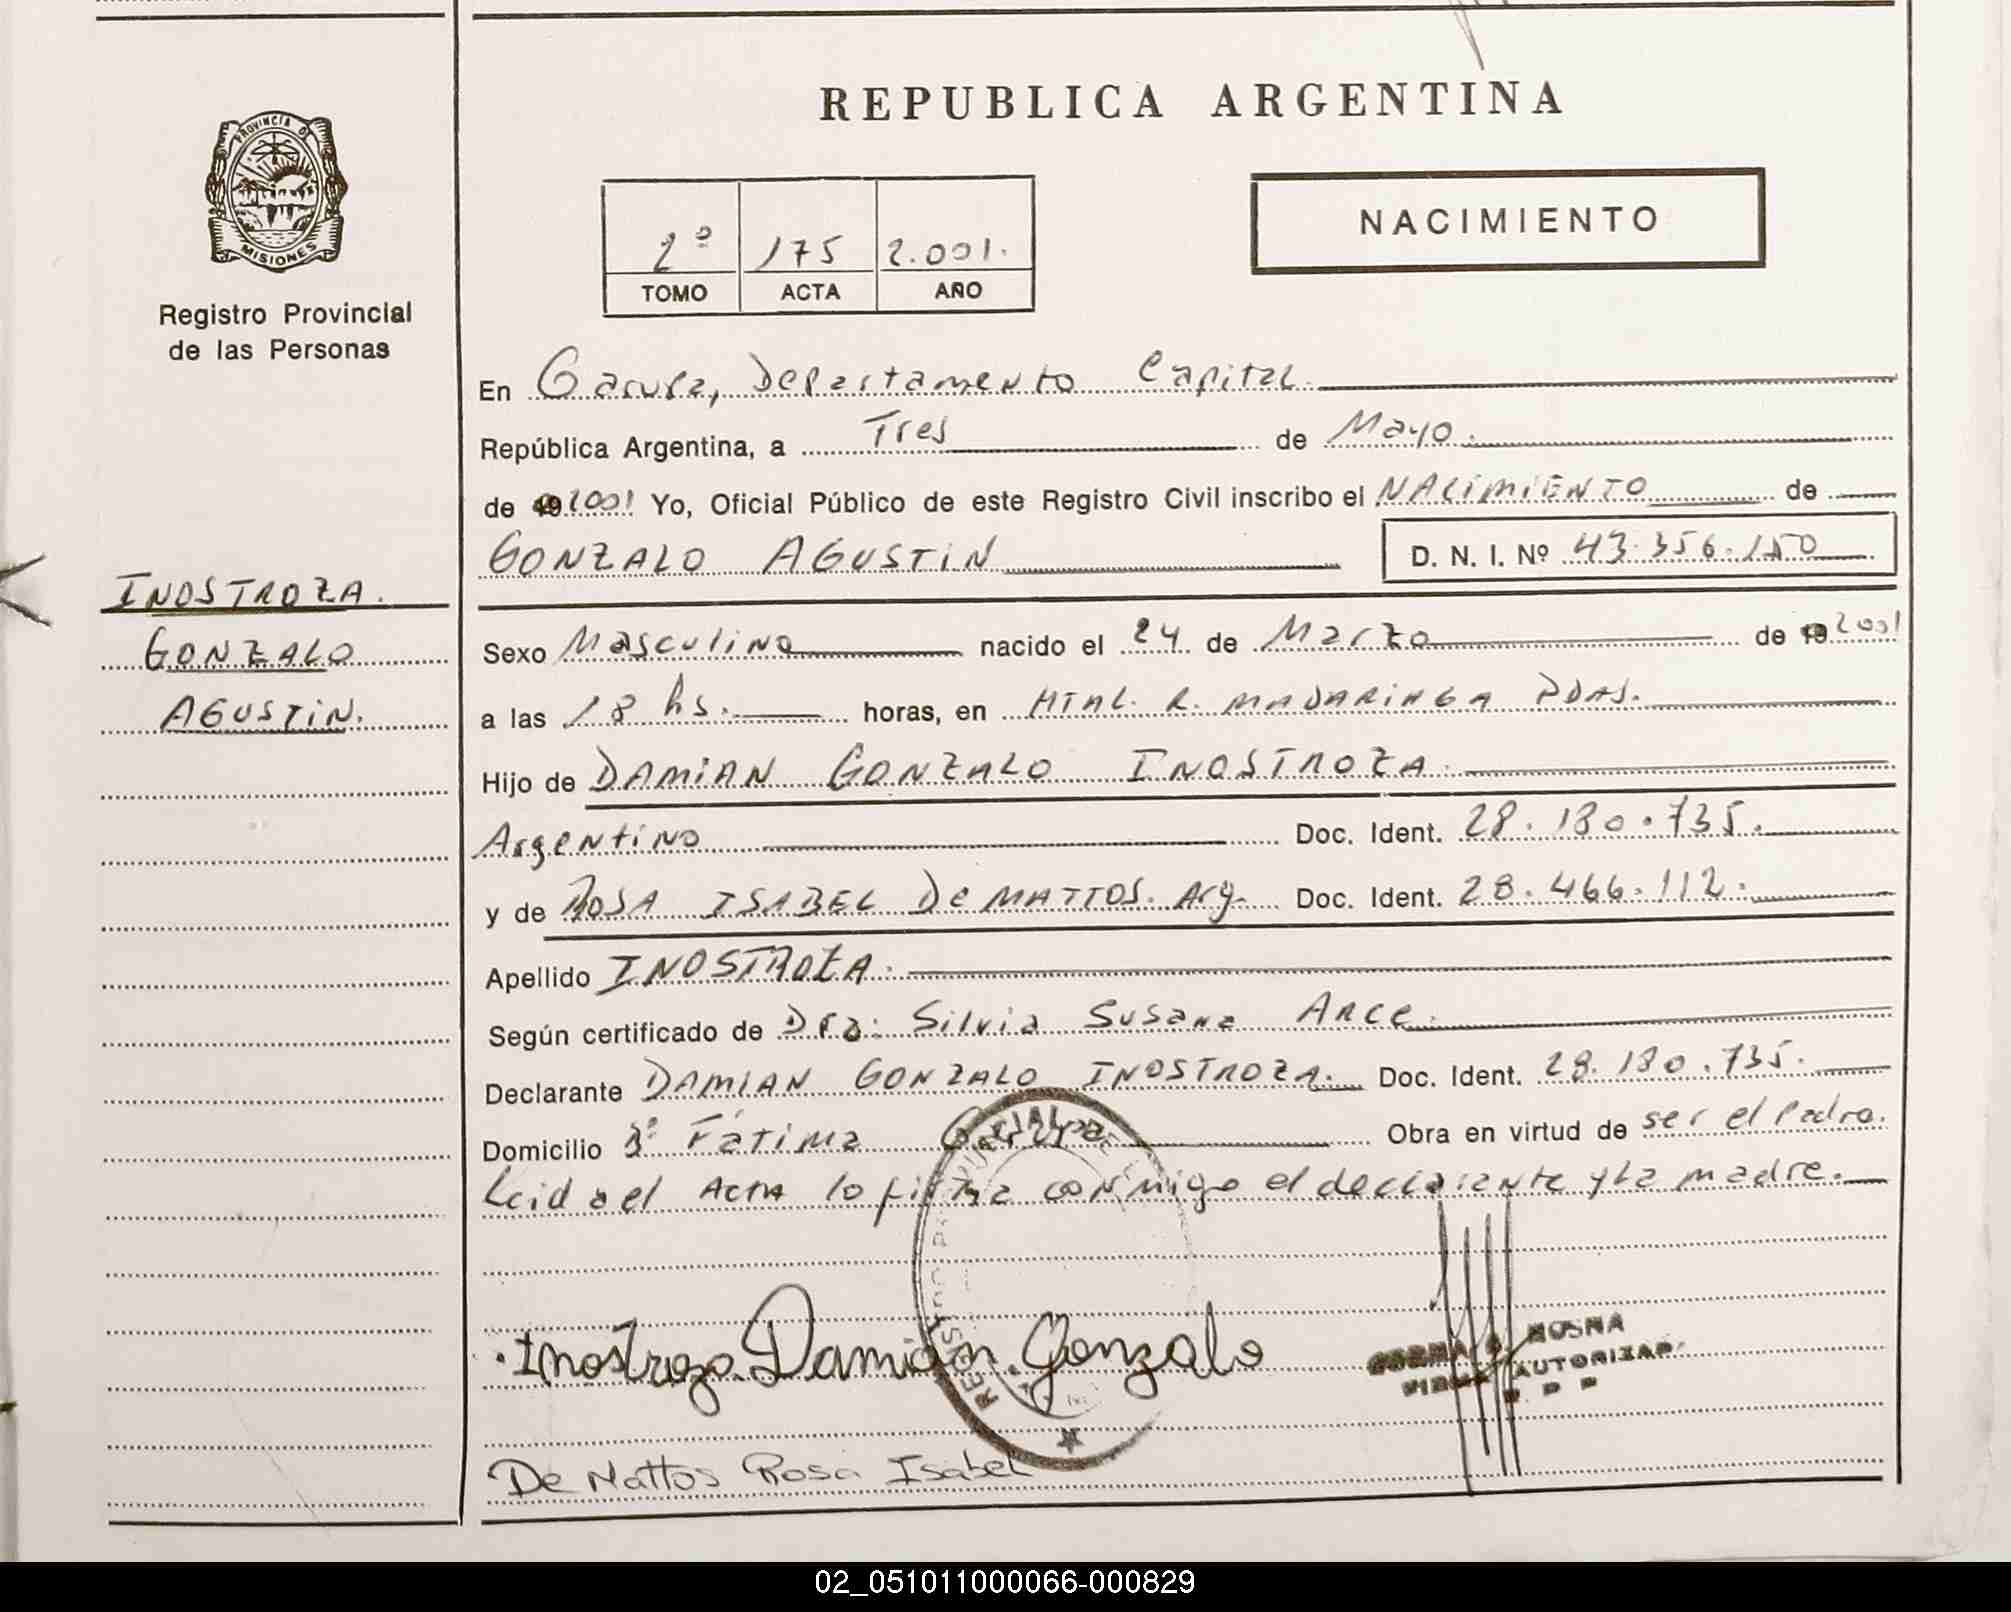 REPUBLICA ARGENTINA
PROVINCIA DE
MISIONES
Registro Provincial
de las Personas
2º 175 2.001.
TOMO ACTA AÑO
NACIMIENTO
En Garupa, Departamento Capital.
República Argentina, a Tres de Mayo.
de 2001 Yo, Oficial Público de este Registro Civil inscribo el NACIMIENTO de
GONZALO AGUSTIN D. N. I. Nº 43.356.150
INOSTROZA.
GONZALO
AGUSTIN.
Sexo Masculino nacido el 24 de Marzo de 19 2001
a las 18 hs. horas, en HTAL. R. MADARIAGA PDAS.
Hijo de DAMIAN GONZALO INOSTROZA.
Argentino Doc. Ident. 28.180.735.
y de ROSA ISABEL De MATTOS. Arg. Doc. Ident. 28.466.112.
Apellido INOSTROZA.
Según certificado de Dra: Silvia Susana Arce.
Declarante DAMIAN GONZALO INOSTROZA. Doc. Ident. 28.180.735.
Domicilio Bº Fátima Obra en virtud de ser el Padre.
Leida el Acta lo firma conmigo el declarante y la madre.
Inostroza Damián Gonzalo
MOSNA
FIRMA AUTORIZAD
R P P
De Mattos Rosa Isabel
02_051011000066-000829